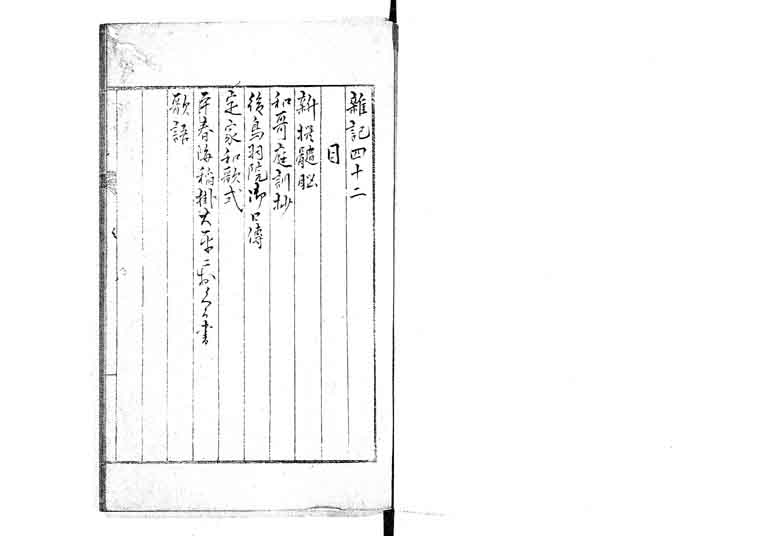 雑記四十二
目
新撰髄脳
和哥庭訓抄
後鳥羽院御口傳
定家和歌式
平春海稲掛大平ニおくる書
歌語